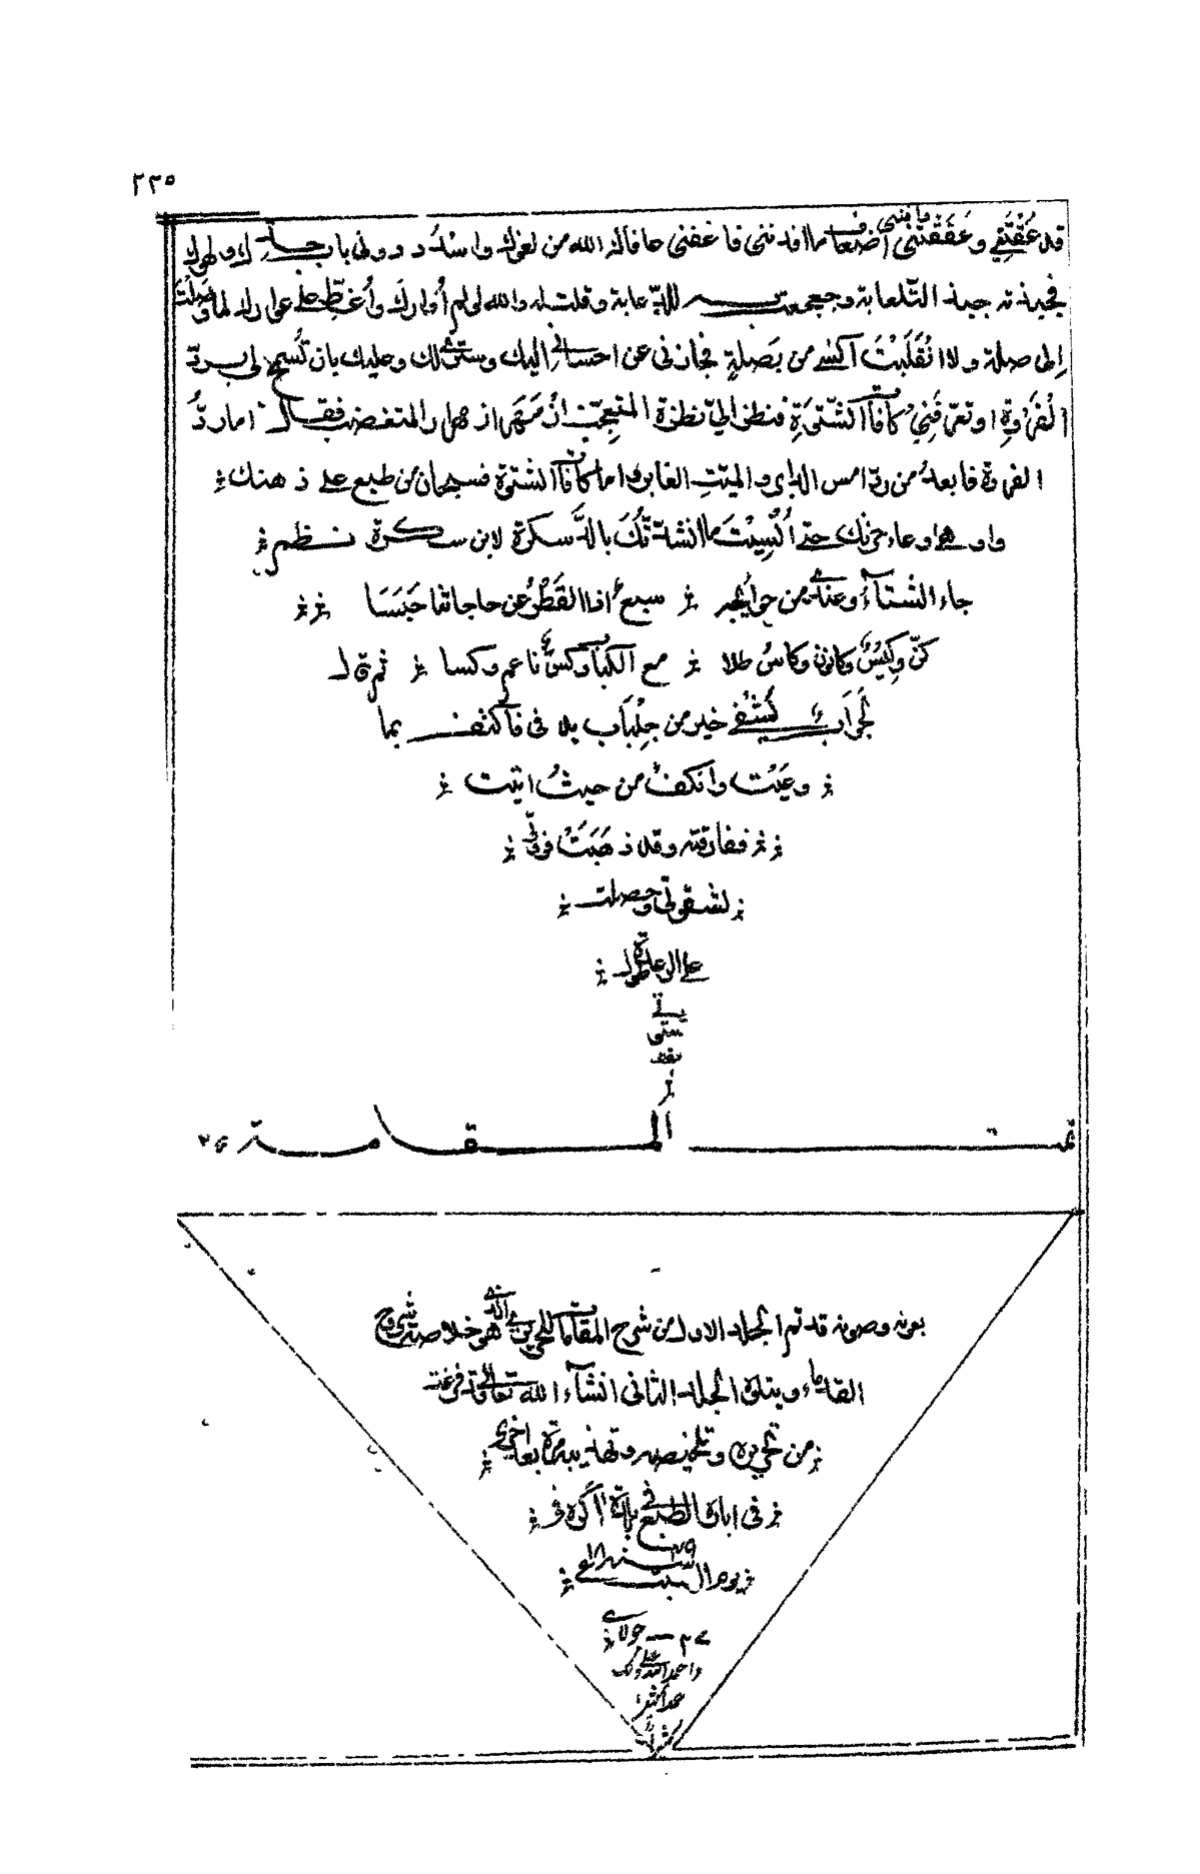 ٢٣٥
قد عُقْتَنِي وعَقَقْتَنِي وافتني اضعاف ما افدتني فاعفني عافاك الله من لغوك واسدُد دوني باب جدك ولهوك
فجبذته جبذ التلعابة وجعجعت به للدعابة وقلت له والله لو لم أُوارِك وأُغَطِّ على عوارك لما وَصَلْتَ
إلى صلة ولا انقَلَبْتَ اكسى من بَصَلَةٍ فجازني عن احساني اليك وستري لك وعليك بان تَسْمَحَ لي برد
الفَرْوَة او تعرّفني كافات الشَّتْوَةِ فنظر اليّ نظرة المتعجب وازْمَهَرَّ ازمهرار المتغضب ثم قال اما ردُّ
الفروة فابعدُ من ردّ امس الدابر والميّت الغابر واما كافات الشتوة فسبحان من طبع على ذهنك
واوهى وعاء خزنك حتى أُنْسِيْتَ ما انشدتُكَ بالدَّسكرة لابن سكرة نظم
جاء الشتآء وعندي من حوائجه سبع اذا القَطْرُ عن حاجاتنا حَبَسَا
كنّ وكيْسٌ وكانون وكاسُ طلا مع الكباب وكسّ ناعم وكسا ثم قال
لَجوَابٌ يشفي خير من جِلْبَاب يدفئ فاكتف بما
وعَيْتَ وانكفْ من حيثُ اتيت
ففارقته وقد ذهَبَتْ فروتي
لشقوتي وحصلت
على الرعدة طول
شتوتي
تمت المقامة
بعونه وصونه قد تم الجلد الاول من شرح المقامات للحريري الذي هو خلاصة شروح
القدماء ويتلوه الجلد الثاني انشآء الله تعالى وقد فرغت
من تحريره وتلخيصه وتهذيبه مرة بعد اخرى
في ابان الطبع في بلدة آگره في
يوم السبت سنه
جولاي